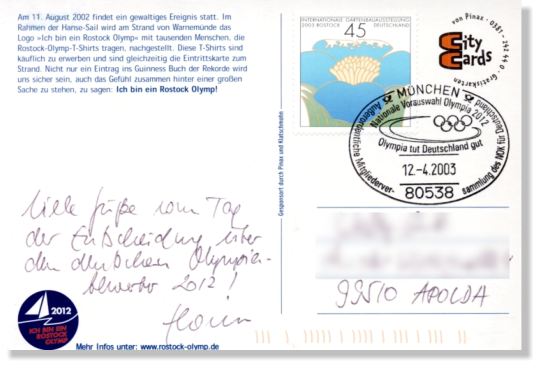 Am 11. August 2002 findet ein gewaltiges Ereignis statt. Im
Rahmen der Hanse-Sail wird am Strand von Warnemünde das
Logo »Ich bin ein Rostock Olymp« mit tausenden Menschen, die
Rostock-Olymp-T-Shirts tragen, nachgestellt. Diese T-Shirts sind
käuflich zu erwerben und sind gleichzeitig die Eintrittskarte zum
Strand. Nicht nur ein Eintrag ins Guinness Buch der Rekorde wird
uns sicher sein, auch das Gefühl zusammen hinter einer großen
Sache zu stehen, zu sagen: Ich bin ein Rostock Olymp!
Viele Grüße vom Tag
der Entscheidung über
den deutschen Olympia-
bewerber 2012!
2012
ICH BIN EIN
ROSTOCK
OLYMP
Mehr Infos unter: www.rostock-olymp.de
Gesponsert durch Pinax und Klatschmohn
INTERNATIONALE GARTENBAUAUSSTELLUNG
2003 ROSTOCK DEUTSCHLAND
45
von Pinax - 0381 - 242 44 0 - Gratiskarten
City
Cards
MÜNCHEN
Nationale Vorauswahl Olympia 2012
Olympia tut Deutschland gut
12.-4.2003
80538
Außerordentliche Mitgliederver-
sammlung des NOK für Deutschland
99510 APOLDA